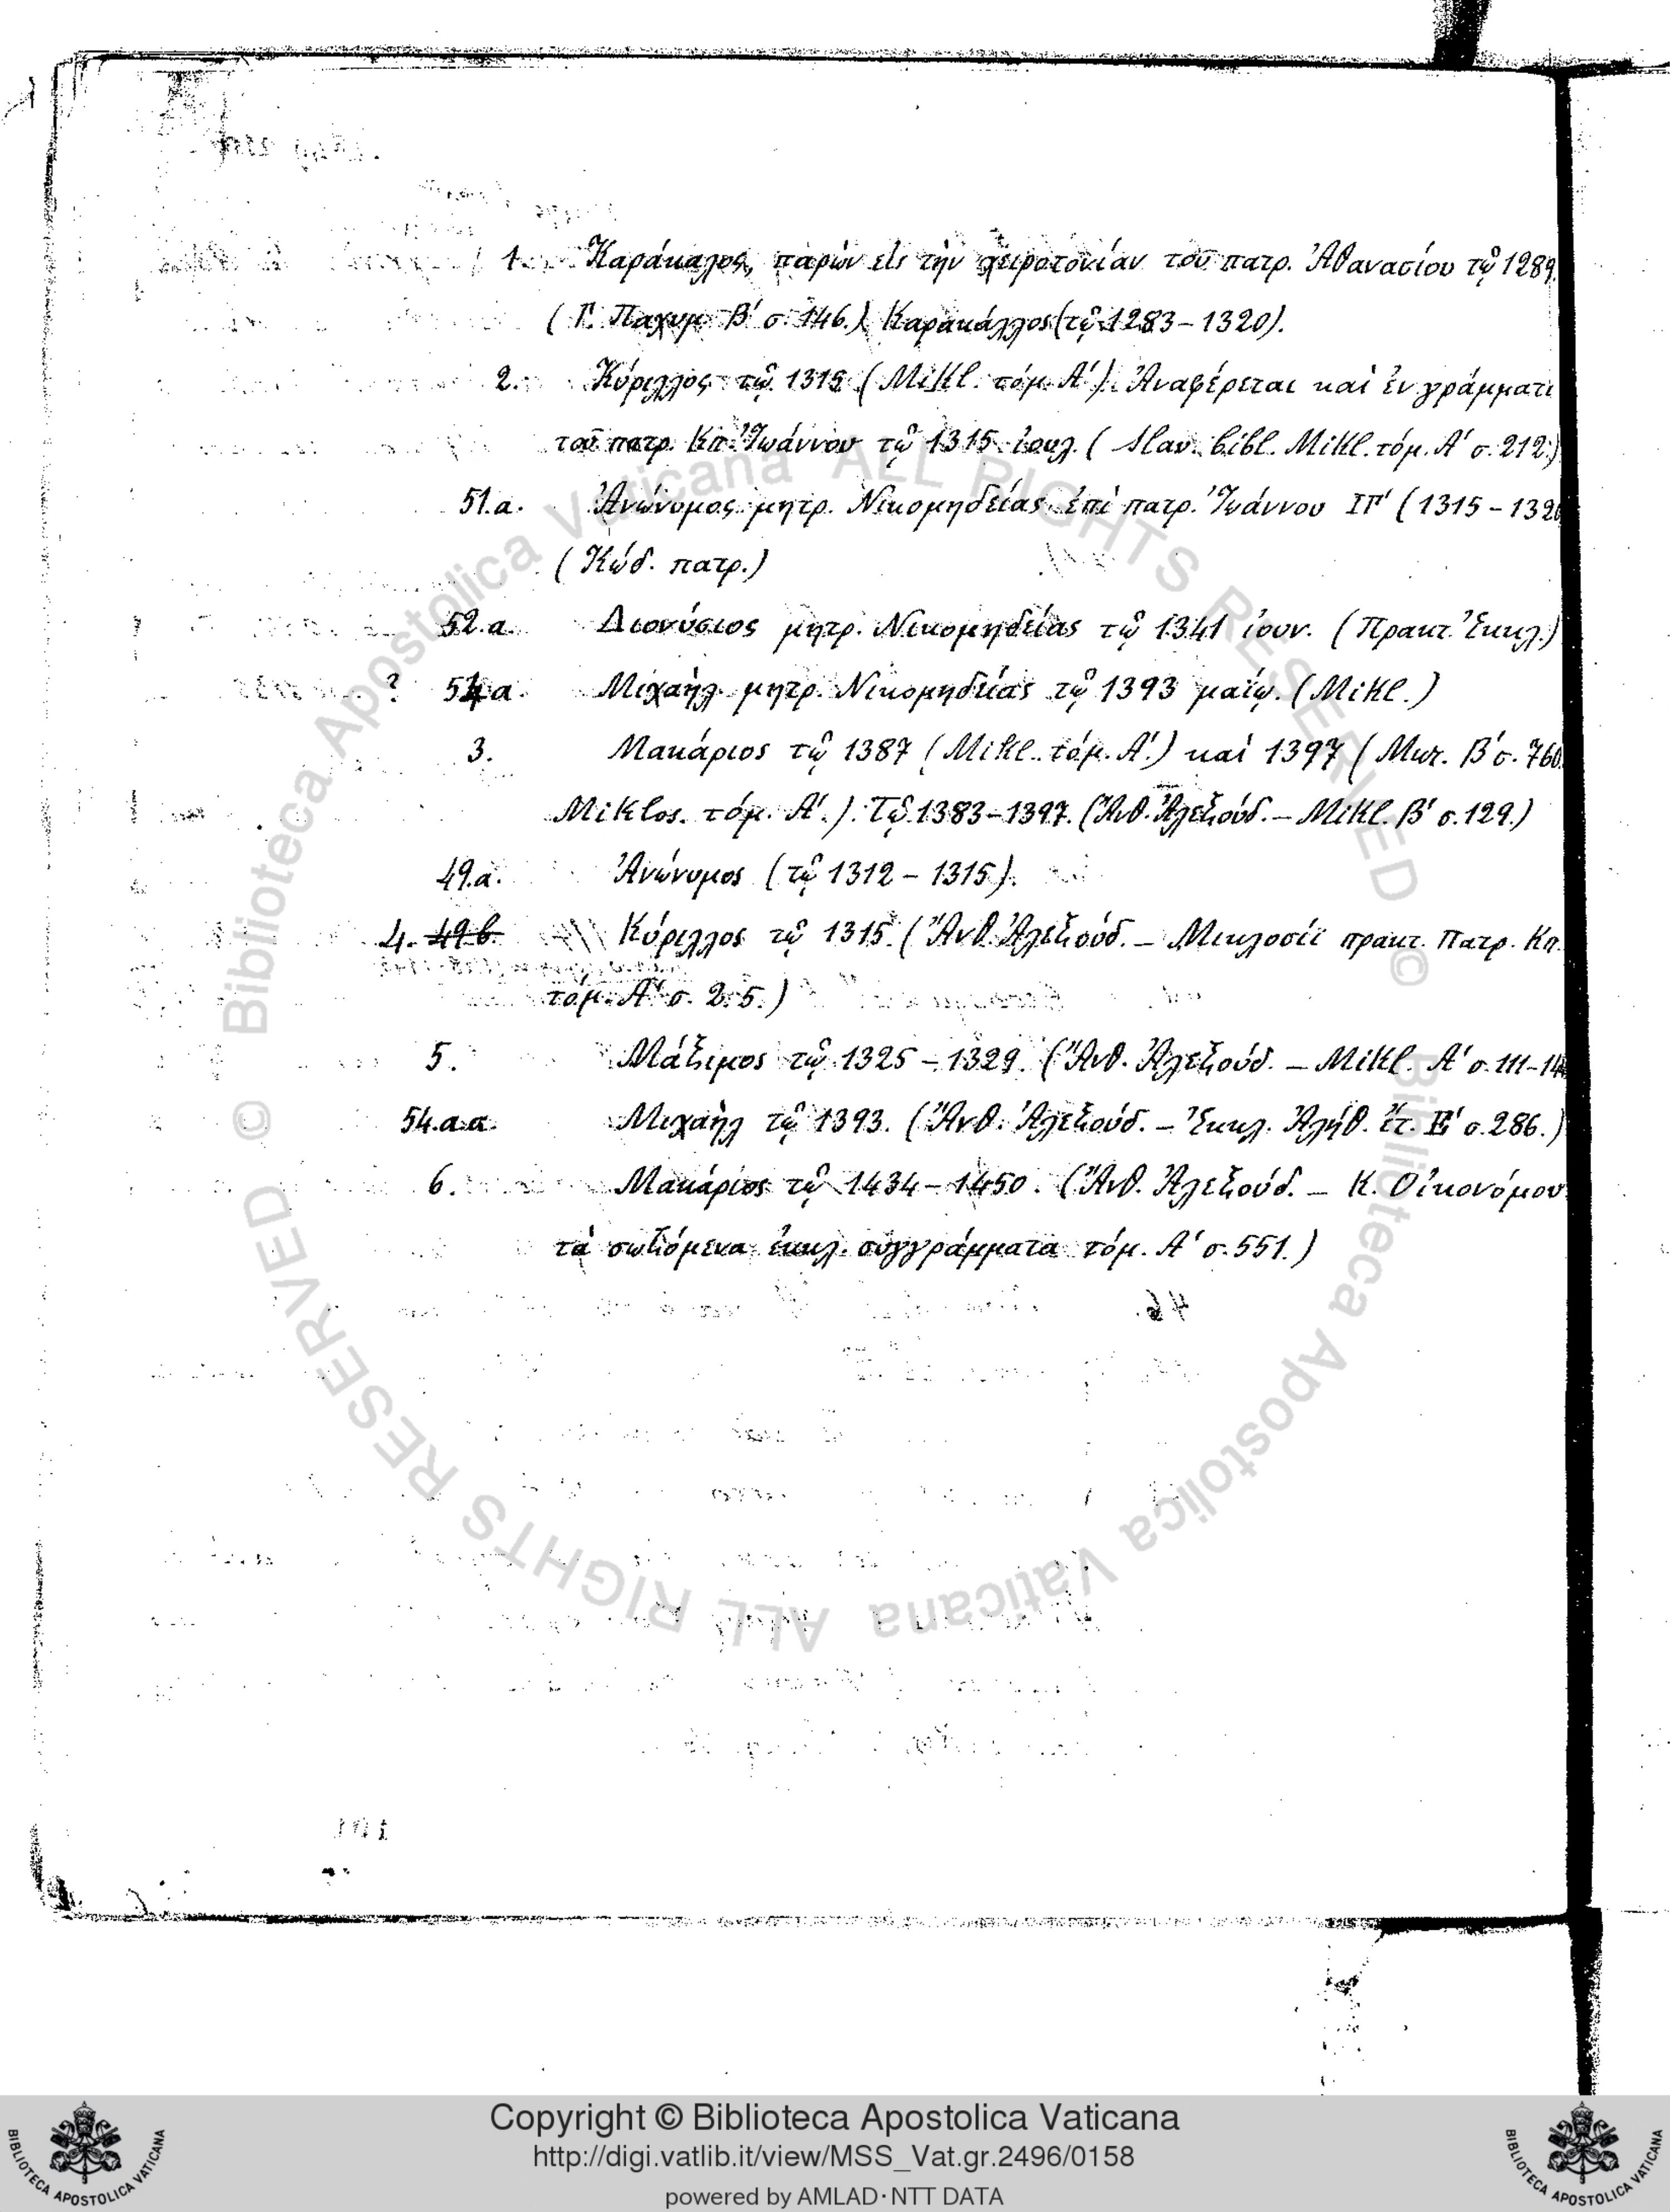 1. Καράκαλος, παρὼν εἰς τὴν χειροτονίαν τοῦ πατρ. Ἀθανασίου τῷ 1289.
(Γ. Παχυμ. Β΄ σ. 146.) Καρακάλλος (τῷ 1283–1320).
2. Κύριλλος τῷ 1315 (Mikl. τόμ. Α΄). Ἀναφέρεται καὶ ἐν γράμματι
τοῦ πατρ. Κπ. Ἰωάννου τῷ 1315 ἰουλ. (Slav. bibl. Mikl. τόμ. Α΄ σ. 212.)
51.α. Ἀνώνυμος μητρ. Νικομηδείας ἐπὶ πατρ. Ἰωάννου ΙΓ΄ (1315 – 1320
(Κώδ. πατρ.)
52.α. Διονύσιος μητρ. Νικομηδείας τῷ 1341 ἰουν. (Πρακτ. Ἐκκλ.)
? 54.α. Μιχαὴλ μητρ. Νικομηδείας τῷ 1393 μαΐῳ. (Mikl.)
3. Μακάριος τῷ 1387 (Mikl. τόμ. Α΄.) καὶ 1397 (Β΄ σ. 760.
Miklos. τόμ. Α΄.). Τῷ 1383–1397. (Ἄνθ. Ἀλεξούδ. – Mikl. Β΄ σ. 129.)
49.α. Ἀνώνυμος (τῷ 1312 – 1315).
4. 49.b. Κύριλλος τῷ 1315. (Ἄνθ. Ἀλεξούδ. – Μικλοσίτ πρακτ. Πατρ. Κπ.
τόμ. Α΄ σ. 2. 5.)
5. Μάξιμος τῷ 1325 – 1329. (Ἄνθ. Ἀλεξούδ. – Mikl. Α΄ σ. 111–14
54.α.α. Μιχαὴλ τῷ 1393. (Ἄνθ. Ἀλεξούδ. – Ἐκκλ. Ἀλήθ. ἔτ. Β΄ σ. 286.)
6. Μακάριος τῷ 1434 – 1450. (Ἄνθ. Ἀλεξούδ. – Κ. Οἰκονόμου
τὰ σωζόμενα ἐκκλ. συγγράμματα τόμ. Α΄ σ. 551.)
© Biblioteca Apostolica Vaticana ALL RIGHTS RESERVED
© Biblioteca Apostolica Vaticana ALL RIGHTS RESERVED
Copyright © Biblioteca Apostolica Vaticana
http://digi.vatlib.it/view/MSS_Vat.gr.2496/0158
powered by AMLAD·NTT DATA
BIBLIOTECA APOSTOLICA VATICANA
BIBLIOTECA APOSTOLICA VATICANA